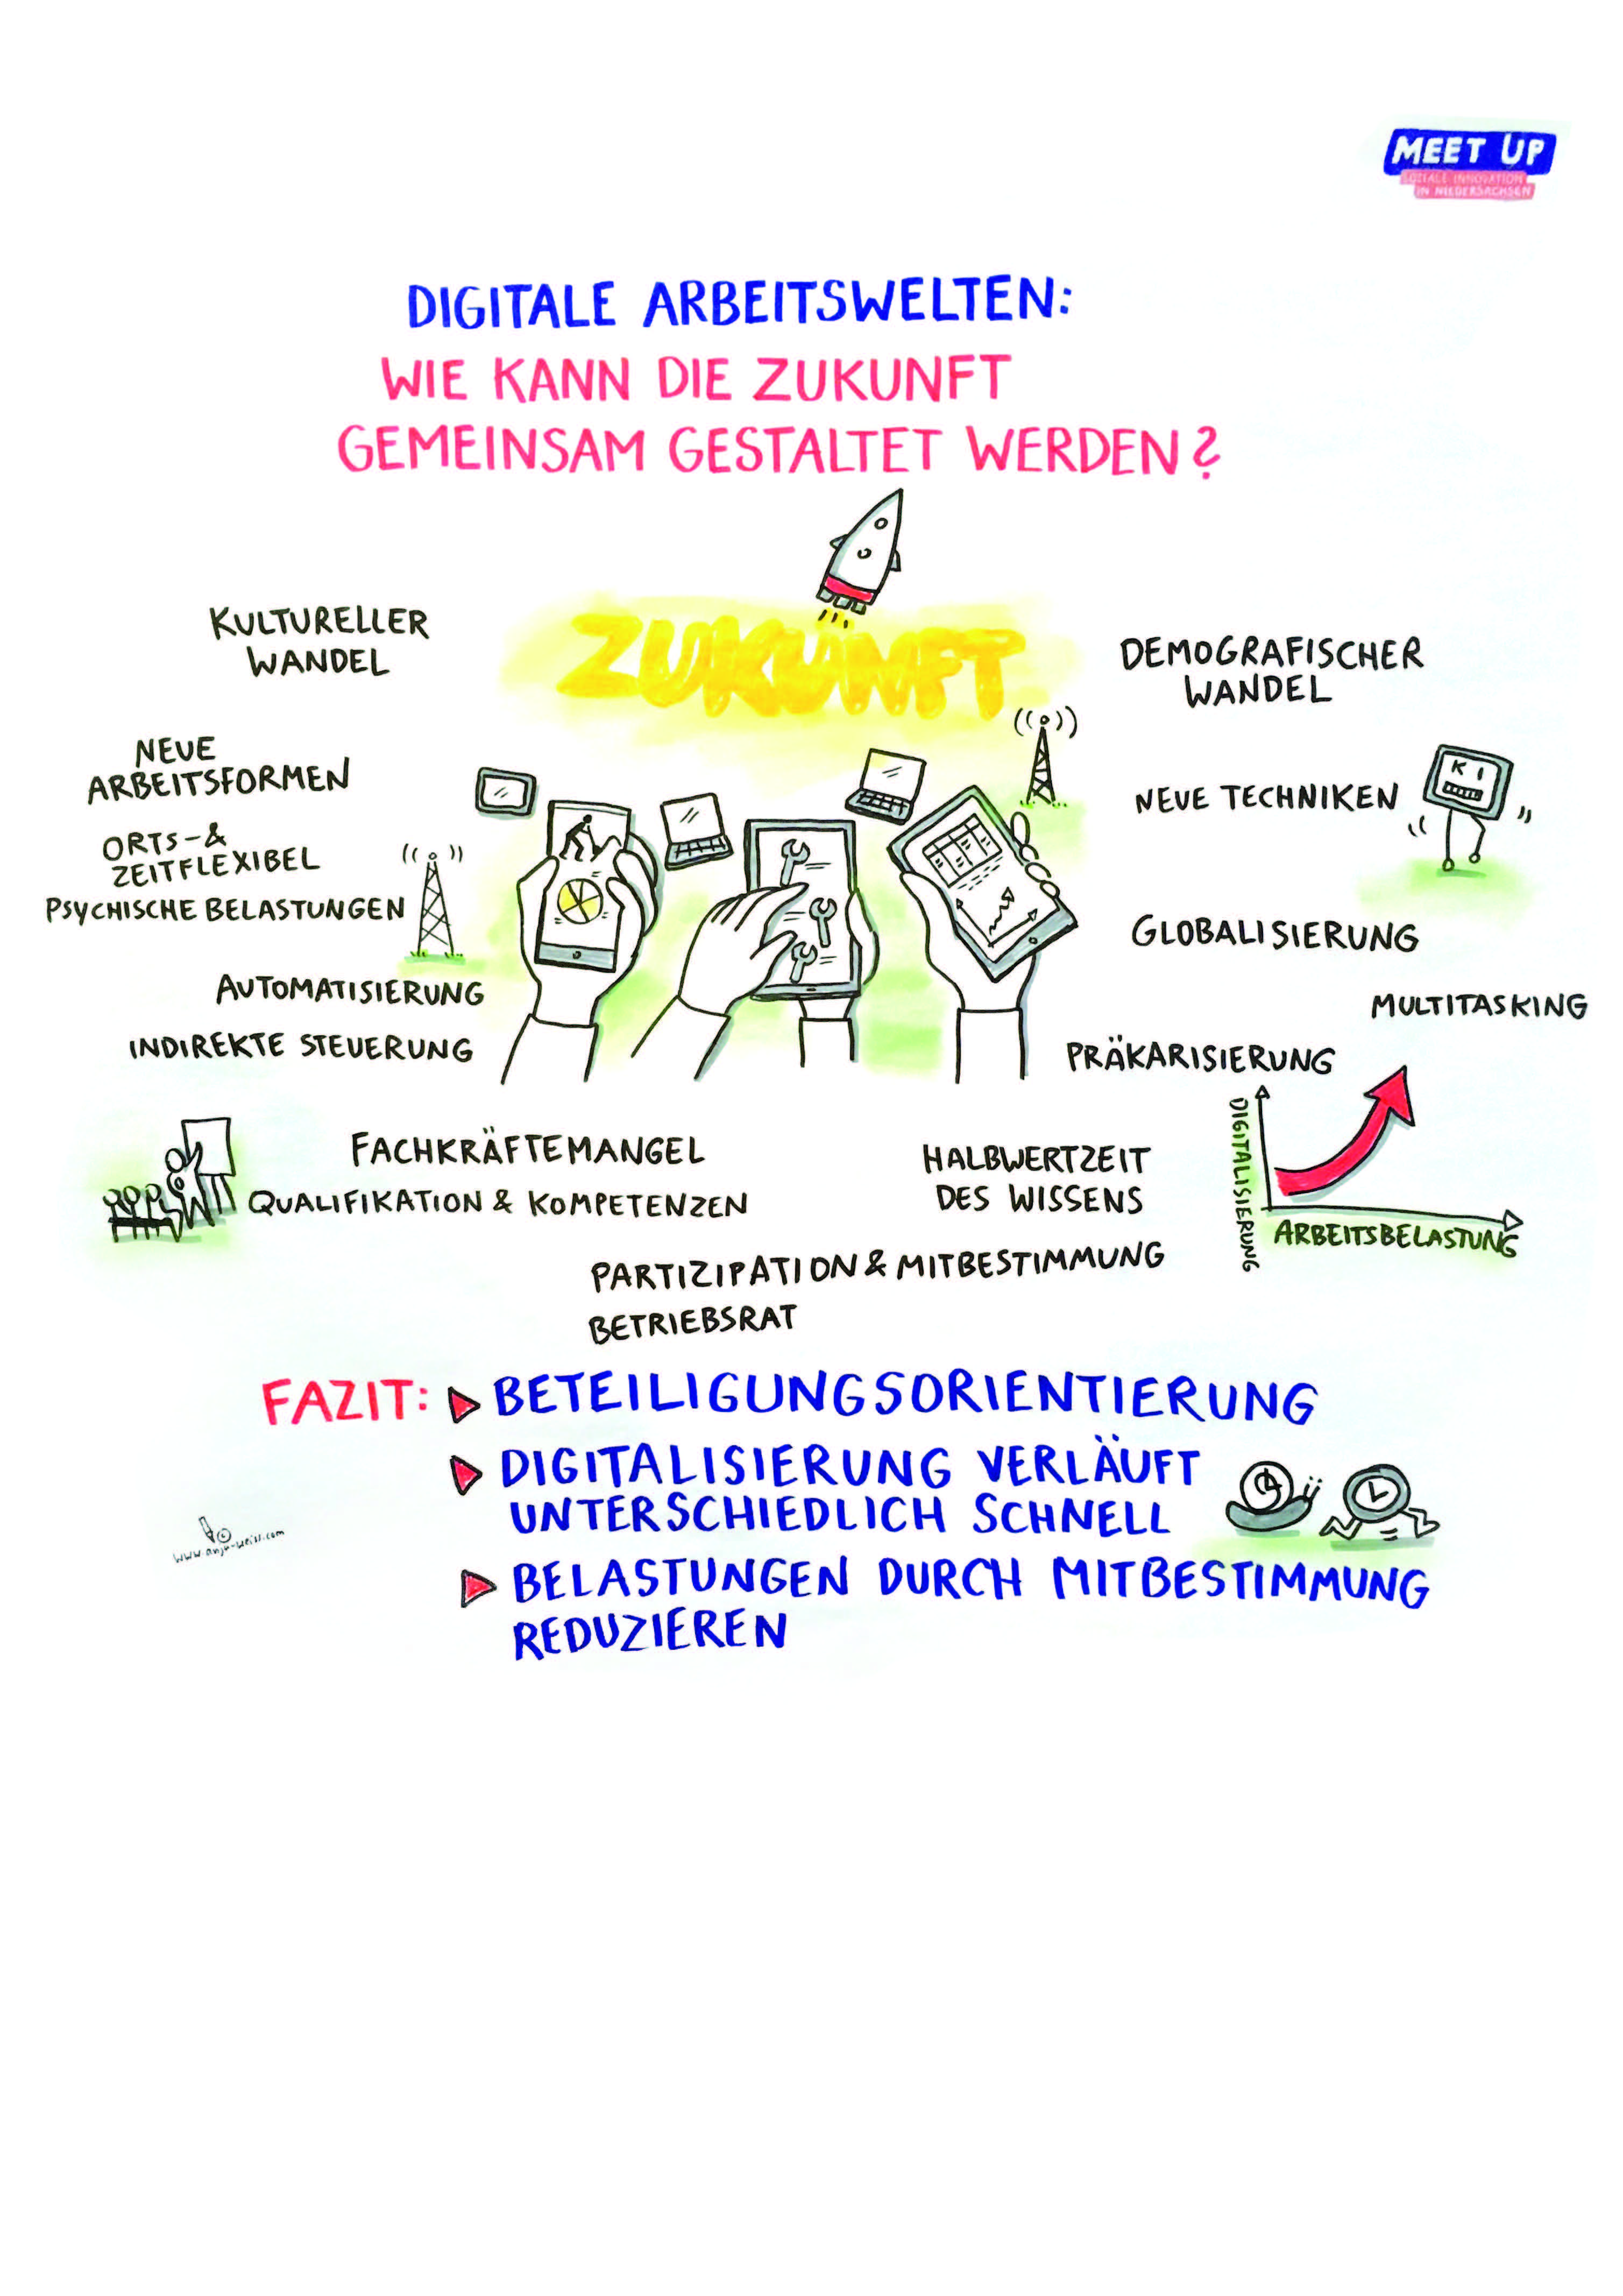 MEET UP
SOZIALE INNOVATION
IN NIEDERSACHSEN
DIGITALE ARBEITSWELTEN:
WIE KANN DIE ZUKUNFT
GEMEINSAM GESTALTET WERDEN?
ZUKUNFT
KULTURELLER
WANDEL
NEUE
ARBEITSFORMEN
ORTS-&
ZEITFLEXIBEL
PSYCHISCHE BELASTUNGEN
AUTOMATISIERUNG
INDIREKTE STEUERUNG
DEMOGRAFISCHER
WANDEL
NEUE TECHNIKEN
KI
GLOBALISIERUNG
MULTITASKING
PRÄKARISIERUNG
DIGITALISIERUNG
ARBEITSBELASTUNG
FACHKRÄFTEMANGEL
QUALIFIKATION & KOMPETENZEN
HALBWERTZEIT
DES WISSENS
PARTIZIPATION & MITBESTIMMUNG
BETRIEBSRAT
FAZIT: BETEILIGUNGSORIENTIERUNG
DIGITALISIERUNG VERLÄUFT
UNTERSCHIEDLICH SCHNELL
BELASTUNGEN DURCH MITBESTIMMUNG
REDUZIEREN
©
www.anja-weiss.com